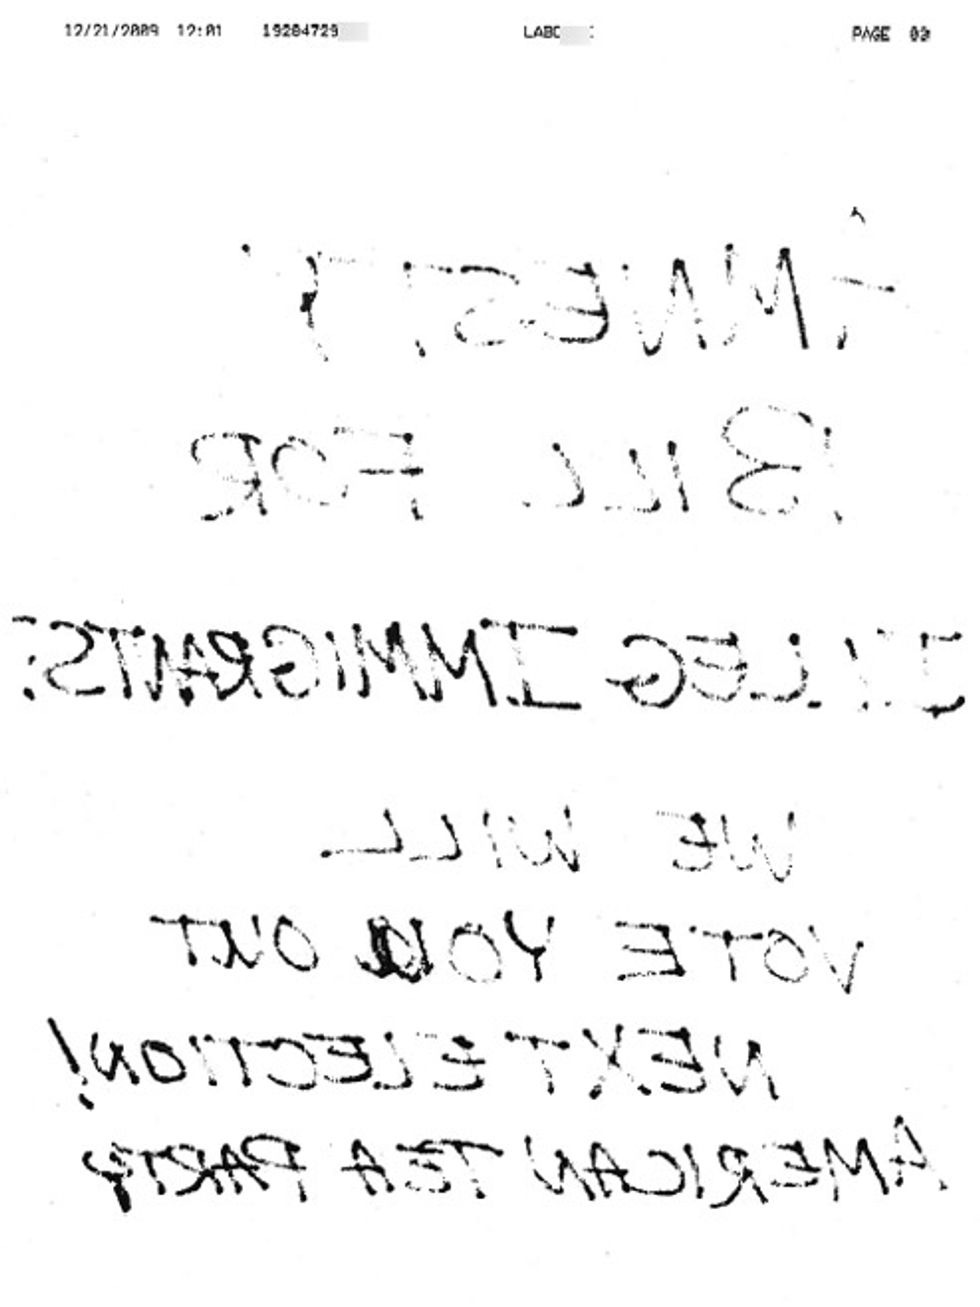 12/21/2009 12:01 19204729 LABC PAGE 03
AMNESTY
BILL FOR
ILLEG IMMIGRANTS.
WE WILL
VOTE YOU OUT
NEXT ELECTION!
AMERICAN TEA PARTY